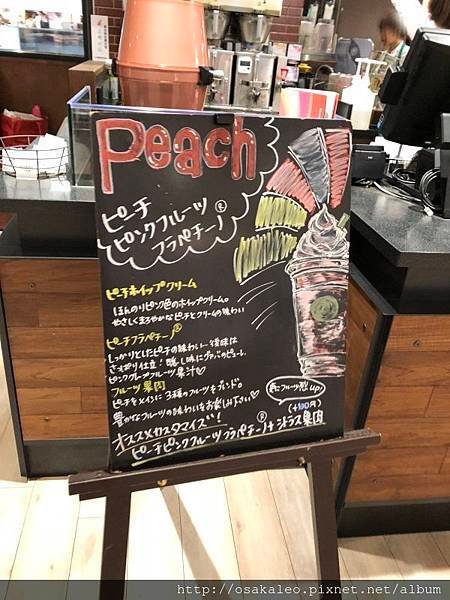 Peach
ピーチ
ピンクフルーツ
フラペチーノ®
ピーチホイップクリーム
ほんのりピンク色のホイップクリーム。
やさしくまろやかなピーチとクリームの味わい
ピーチフラペチーノ®
しっかりとしたピーチの味わい…後味は
さっぱり仕立！隠し味にグァバのピューレ、
ピンクグレープフルーツ果汁♡
フルーツ果肉
ピーチをメインに3種のフルーツをブレンド。
豊かなフルーツの味わいをお楽しみ下さい♡
フルーツ感up!
オススメカスタマイズ！ (+100円)
ピーチピンクフルーツフラペチーノ®+シトラス果肉
http://osakaleo.pixnet.net/album